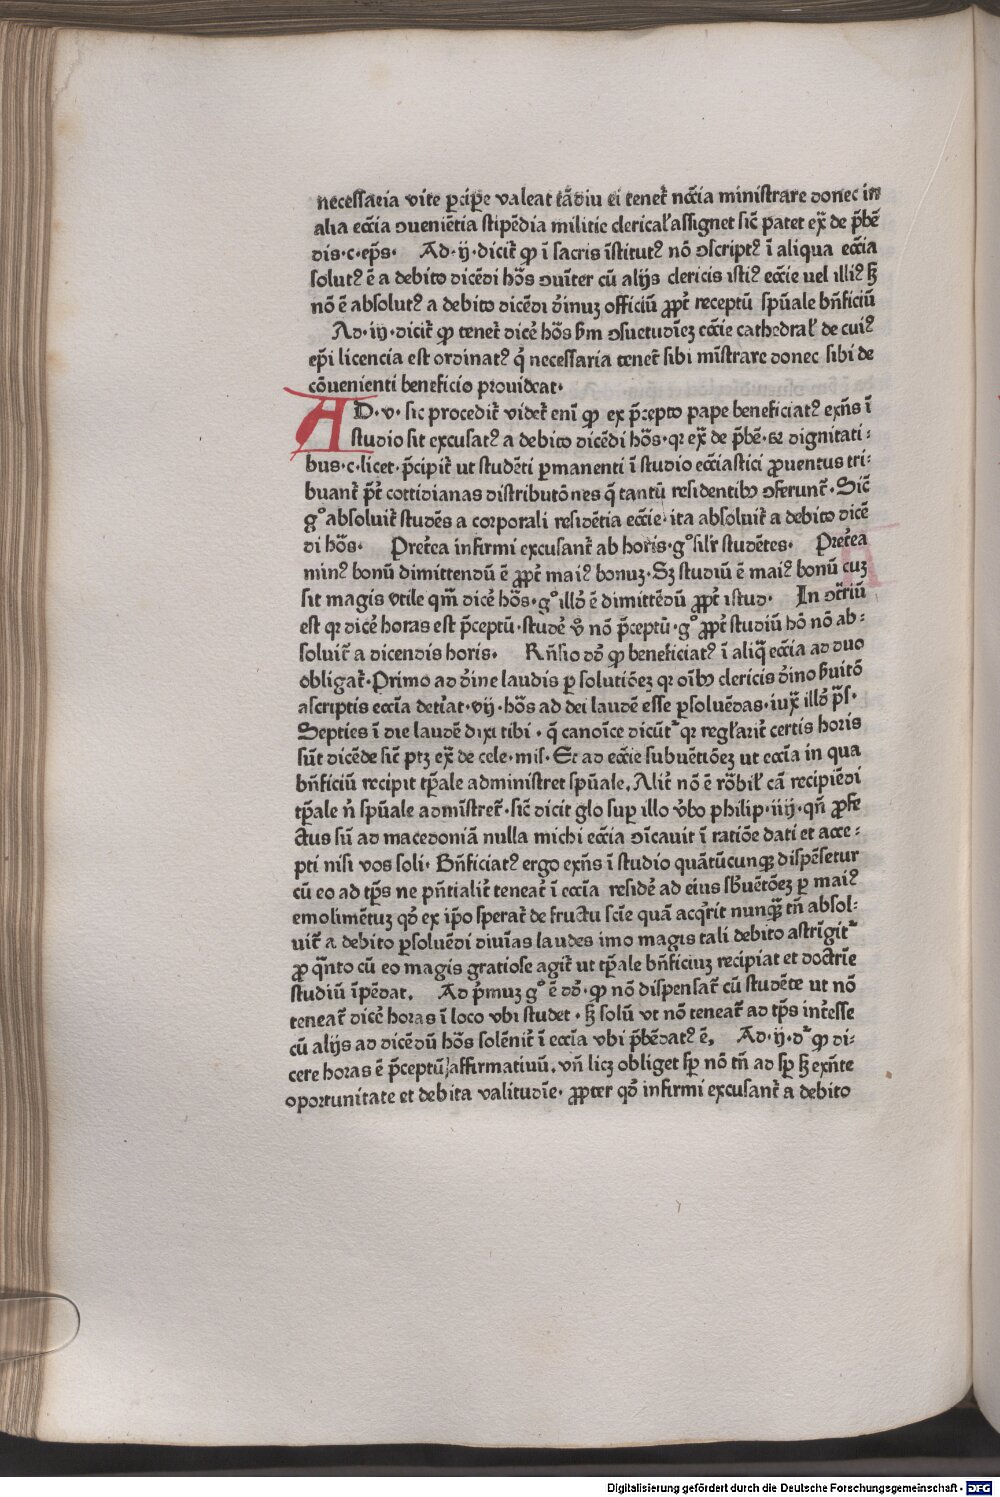 necessaria vite ꝑciꝑe valeat tādiu ei tenet̄ nc̄cia ministrare donec in
alia ecc̄ia ↄueniētia stipēdia militie clerical̕ assignet sic̄ patet ex̄ de p̄bē
dis·c·ep̄s· Ad·ij·dicit̄ ꝙ ī sacris īstitutꝰ nō ↄscriptꝰ ī aliqua ecc̄ia
solutꝰ ē a debito dicēdi hōs ↄuīter cū alijs clericis istiꝰ ecc̄ie uel illiꝰ ꝫ
nō ē absolutꝰ a debito dicēdi d̄inuꝫ officiū ꝓpt̄ receptū sp̄uale bn̄ficiū
Ad·iij·dicit̄ ꝙ tenet̄ dicē hōs ẜm ↄsuetudīeꝫ ecc̄ie cathedral̕ de cuiꝰ
ep̄i licencia est ordinatꝰ q̄ necessaria tenet̄ sibi mīstrare donec sibi de
cōuenienti beneficio prouideat·
AD·v·sic procedit̄ videt̄ eni ꝙ ex p̄cepto pape beneficiatꝰ exn̄s ī
studio sit excusatꝰ a debito dicēdi hōs·qꝛ ex̄ de p̄bē·⁊ dignitati⸗
bus·c·licet·p̄cipit̄ ut studēti ꝑmanenti ī studio ecc̄iastici ꝓuentus tri⸗
buant̄ p̄t̄ cottidianas distributōnes q̄ tantū residentibꝰ ↄferunt̄·Sic̄
gͦ absoluit̄ studēs a corporali residētia ecc̄ie·ita absoluit̄ a debito dicē
di hōs· Pret̄ea infirmi excusant̄ ab horis·gͦ sil̕r studētes· Pret̄ea
minꝰ bonū dimittendū ē ꝓpt̄ maiꝰ bonuꝫ·Sꝫ studiū ē maiꝰ bonū cuꝫ
sit magis vtile qm̄ dicē hōs·gͦ illd̄ ē dimittēdū ꝓpt̄ istud· In ↄt̄riū
est qꝛ dicē horas est p̄ceptū·studē v̄o nō p̄ceptū·gͦ ꝓpt̄ studiū hō nō ab⸗
soluit̄ a dicendis horis· Rn̄sio dd̄ ꝙ beneficiatꝰ ī aliq̄ ecc̄ia ad duo
obligat̄·Primo ad d̄ine laudis ꝑsolutiōeꝫ qꝛ oībꝰ clericis d̄ino ẜuitō
ascriptis ecc̄ia det̄iat·vij·hōs ad dei laudē esse ꝑsoluēdas·iux̄ illd̄ p̄s·
Septies ī die laudē dixi tibi·q̄ canoīce dicūt̄ qꝛ regl̕arit̄ certis horis
sūt dicēde sic̄ ptꝫ ex̄ de cele·mis·Et ad ecc̄ie subuētiōeꝫ ut ecc̄ia in qua
bn̄ficiū recipit tp̄ale administret sp̄uale.Alit̄ nō ē rōbil̕ cā recipiēdi
tp̄ale n̄ sp̄uale admīstret̄·sic̄ dicit glo suꝑ illo v̄bo philip·iiij·qn̄ ꝓfe
ctus sū ad macedoniā nulla michi ecc̄ia ↄīcauit ī ratiōe dati et acce⸗
pti nisi vos soli· Bn̄ficiatꝰ ergo exn̄s ī studio quātūcunqꝫ dispēsetur
cū eo ad tp̄s ne pn̄tialit̄ teneat̄ ī ecc̄ia residē ad eius sb̄uētōeꝫ ꝑ maiꝰ
emolimētuꝫ qd̄ ex ip̄o sperat̄ de fructu scīe quā acq̄rit nunqꝫ tn̄ absol⸗
uit̄ a debito ꝑsoluēdi diuīas laudes imo magis tali debito astrīgit̄
ꝓ q̄nto cū eo magis gratiose agit̄ ut tp̄ale bn̄ficiuꝫ recipiat et doctrīe
studiū īpēdat. Ad p̄muꝫ gͦ ē dd̄·ꝙ nō dispensat̄ cū studēte ut nō
teneat̄ dicē horas ī loco vbi studet·ꝫ solū vt nō teneat̄ ad tp̄s int̄esse
cū alijs ad dicēdū hōs solēnit̄ ī ecc̄ia vbi p̄bēdatꝰ ē. Ad·ij·d̄r ꝙ di⸗
cere horas ē p̄ceptū affirmatiuū.vn̄ licꝫ obliget sꝑ nō tn̄ ad sꝑ ꝫ exn̄te
oportunitate et debita valitudīe· ꝓpter qd̄ infirmi excusant̄ a debito
Digitalisierung gefördert durch die Deutsche Forschungsgemeinschaft - DFG